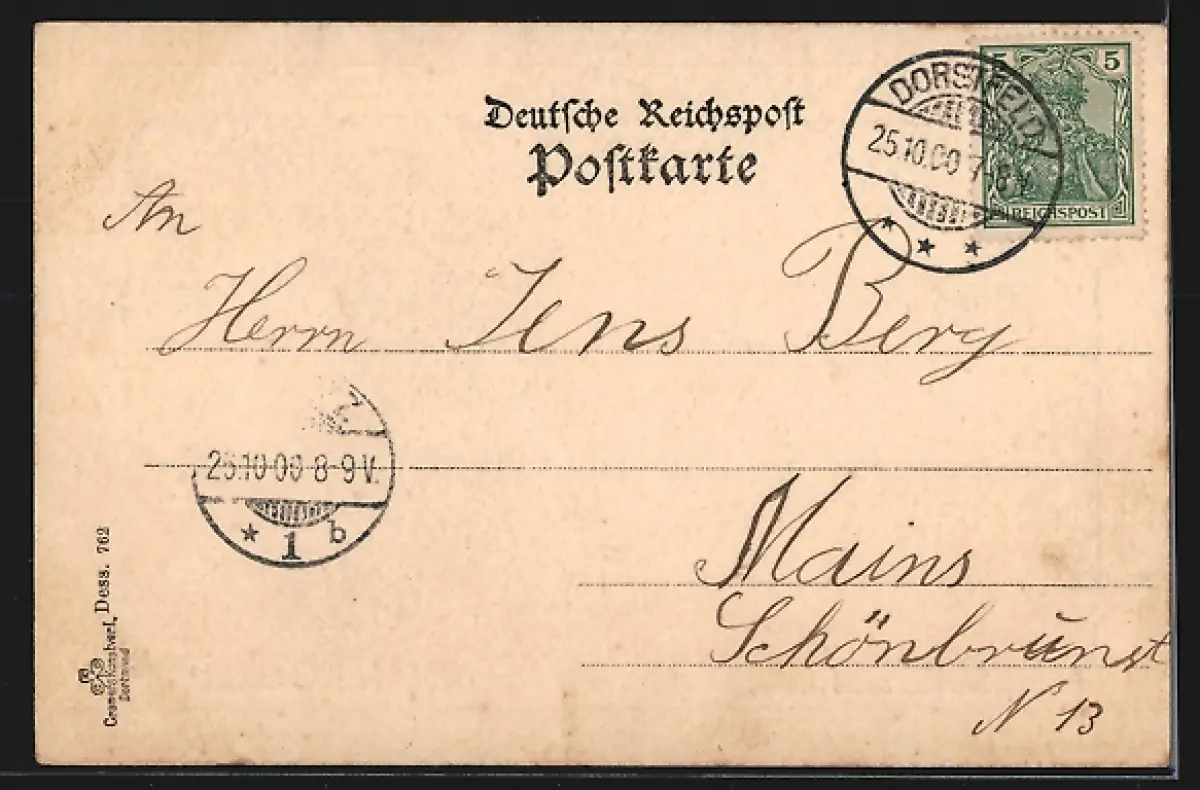 Deutsche Reichspost
Postkarte
DORSTFELD
25.10.00 7-8 V.
* * *
5 5
REICHSPOST
An
Herrn Jens Berg
Z
26.10.00 8-9 V.
* 1 b
Mains
Schönbrunst
N 13
Dess. 762
Dortmund